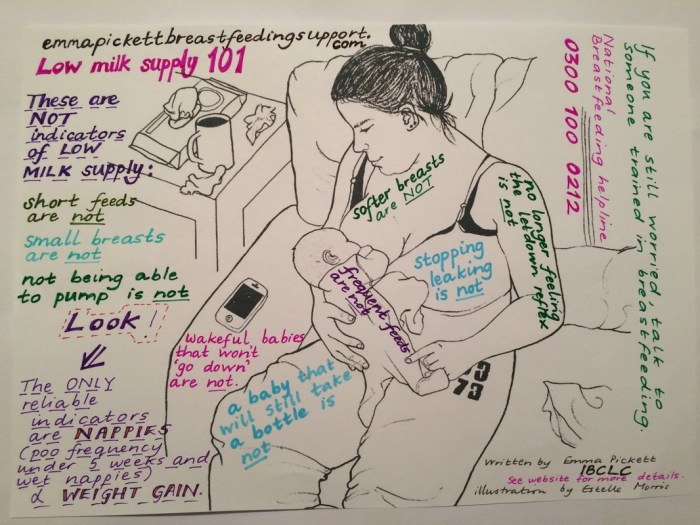 emmapickettbreastfeedingsupport.
com
Low milk supply 101
These are
NOT
indicators
of LOW
MILK supply:
short feeds
are not
small breasts
are not
not being able
to pump is not
Look!
The ONLY
reliable
indicators
are NAPPIES
(poo frequency
under 5 weeks and
wet nappies)
& WEIGHT GAIN.
softer breasts
are NOT
no longer feeling
the letdown reflex
is not
stopping
leaking
is not
frequent feeds
are not
wakeful babies
that won't
'go down'
are not.
a baby that
will still take
a bottle is
not
73
73
If you are still worried, talk to
someone trained in breastfeeding.
National
Breastfeeding helpline
0300 100 0212
Written by Emma Pickett
IBCLC
See website for more details.
illustration by Estelle Morris